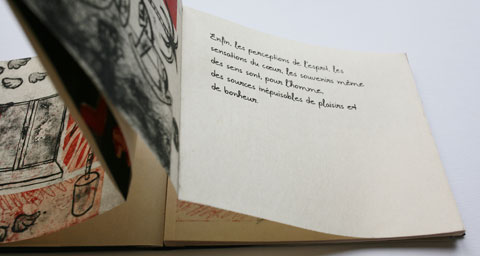 Enfin, les perceptions de l'esprit, les
sensations du cœur, les souvenirs même
des sens sont, pour l'homme,
des sources inépuisables de plaisirs et
de bonheur.